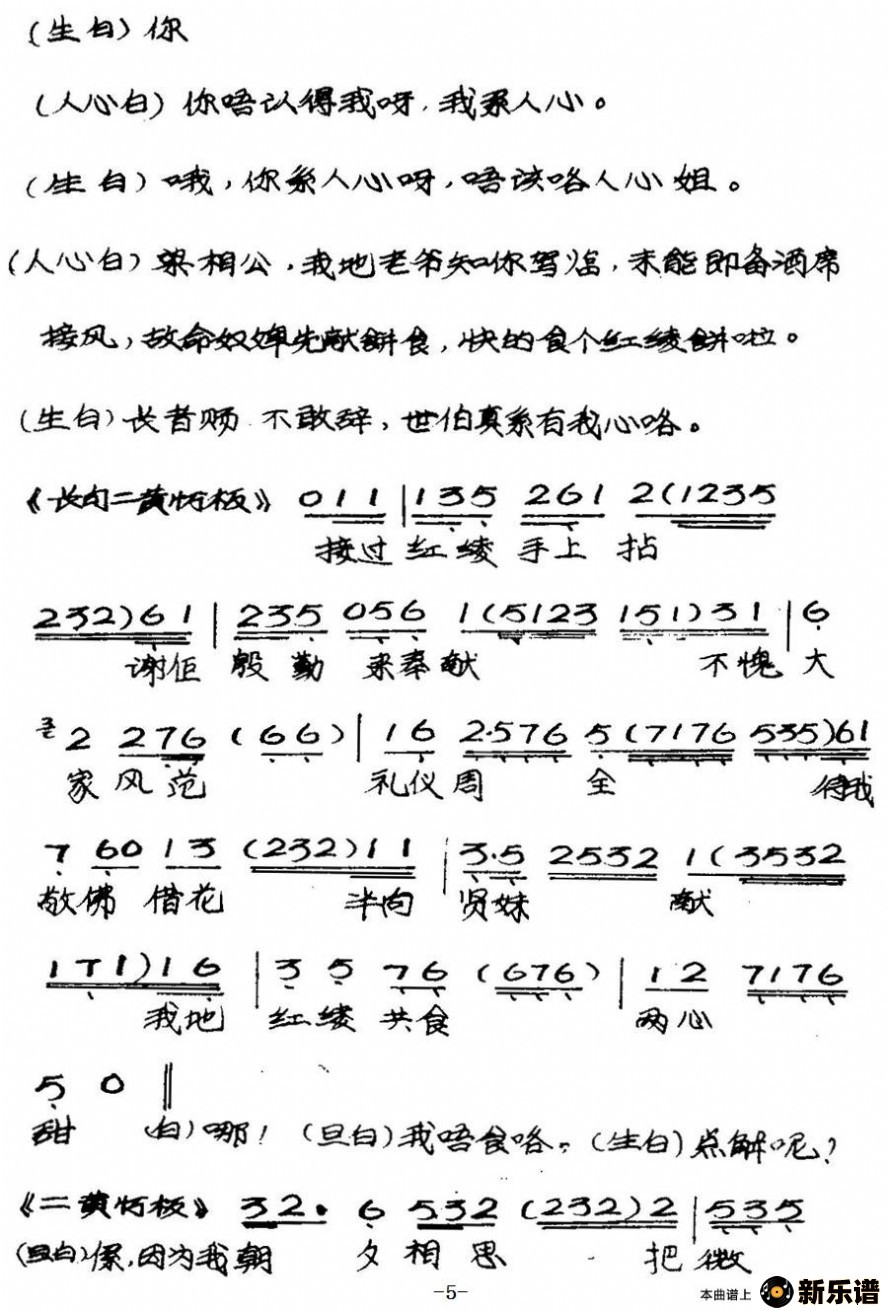 (生白)你
(人心白)你唔认得我呀,我系人心。
(生白)哦,你系人心呀,唔该咯人心姐。
(人心白)梁相公,我地老爷知你驾临,未能即备酒席
接风,故命奴婢先献餅食,快的食个红绫餅啦。
(生白)长者赐 不敢辞,世伯真系有我心咯。
《长句二黄慢板》 0 1 1 | 1 3 5 2 6 1 2 ( 1 2 3 5
接过 红 绫 手上 拈
2 3 2 ) 6 1 | 2 3 5 0 5 6 1 ( 5 1 2 3 1 5 1 ) 3 1 | 6
谢佢 殷 勤 来奉献 不愧 大
2 2 7 6 ( 6 6 ) | 1 6 2 · 5 7 6 5 ( 7 1 7 6 5 3 5 ) 6 1
家 风 范 礼仪 周 全 待我
7 6 0 1 3 ( 2 3 2 ) 1 1 | 3 · 5 2 5 3 2 1 ( 3 5 3 2
敬 佛 借花 半向 贤妹 献
1 7 1 ) 1 6 | 3 5 7 6 ( 6 7 6 ) | 1 2 7 1 7 6
我地 红 绫 共食 两心
5 0 ‖
甜 (白)哪! (旦白)我唔食咯。(生白)点解呢?
《二黄慢板》 3 2 · 6 5 3 2 ( 2 3 2 ) 2 | 5 3 5
(旦白)傻,因为我朝 夕 相 思 把 微
-5-
本曲谱上 新乐谱